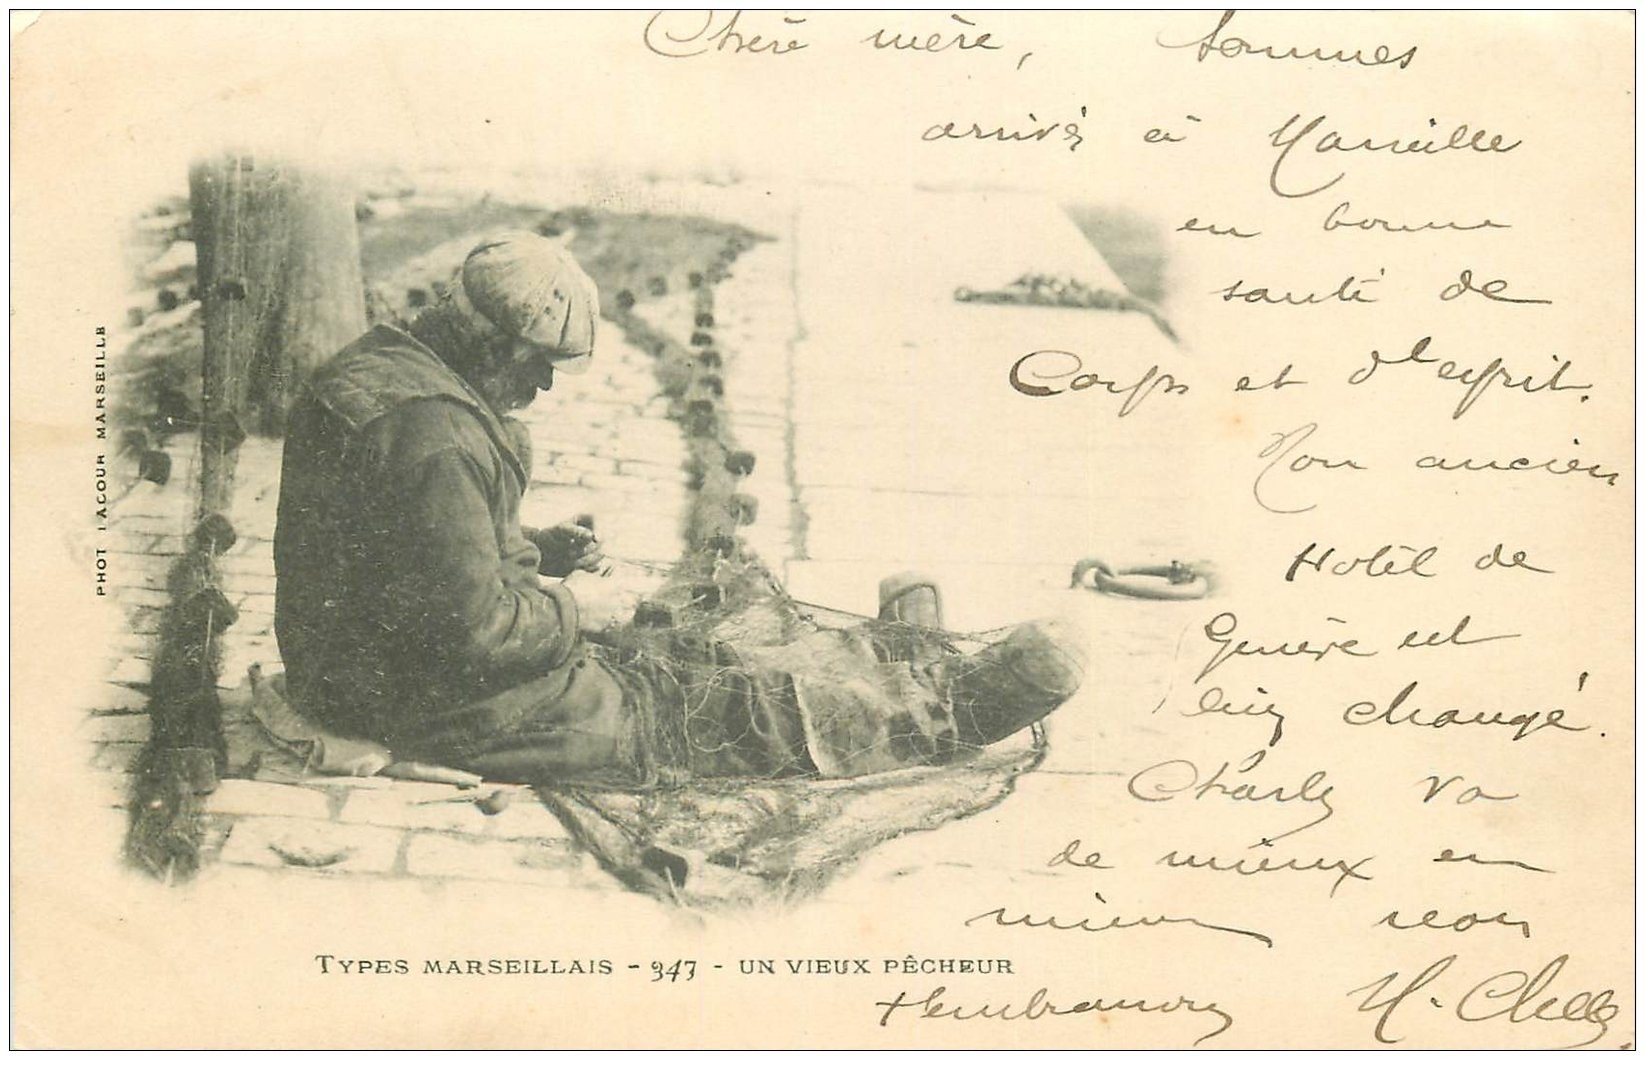 Chère mère, sommes
arrivés à Marseille
en bonne
santé de
Corps et d'esprit.
Mon ancien
Hotel de
Genève est
bien changé.
Charly va
de mieux en
mieux
embrassons
M.
PHOT LACOUR MARSEILLE
TYPES MARSEILLAIS - 947 - UN VIEUX PÊCHEUR